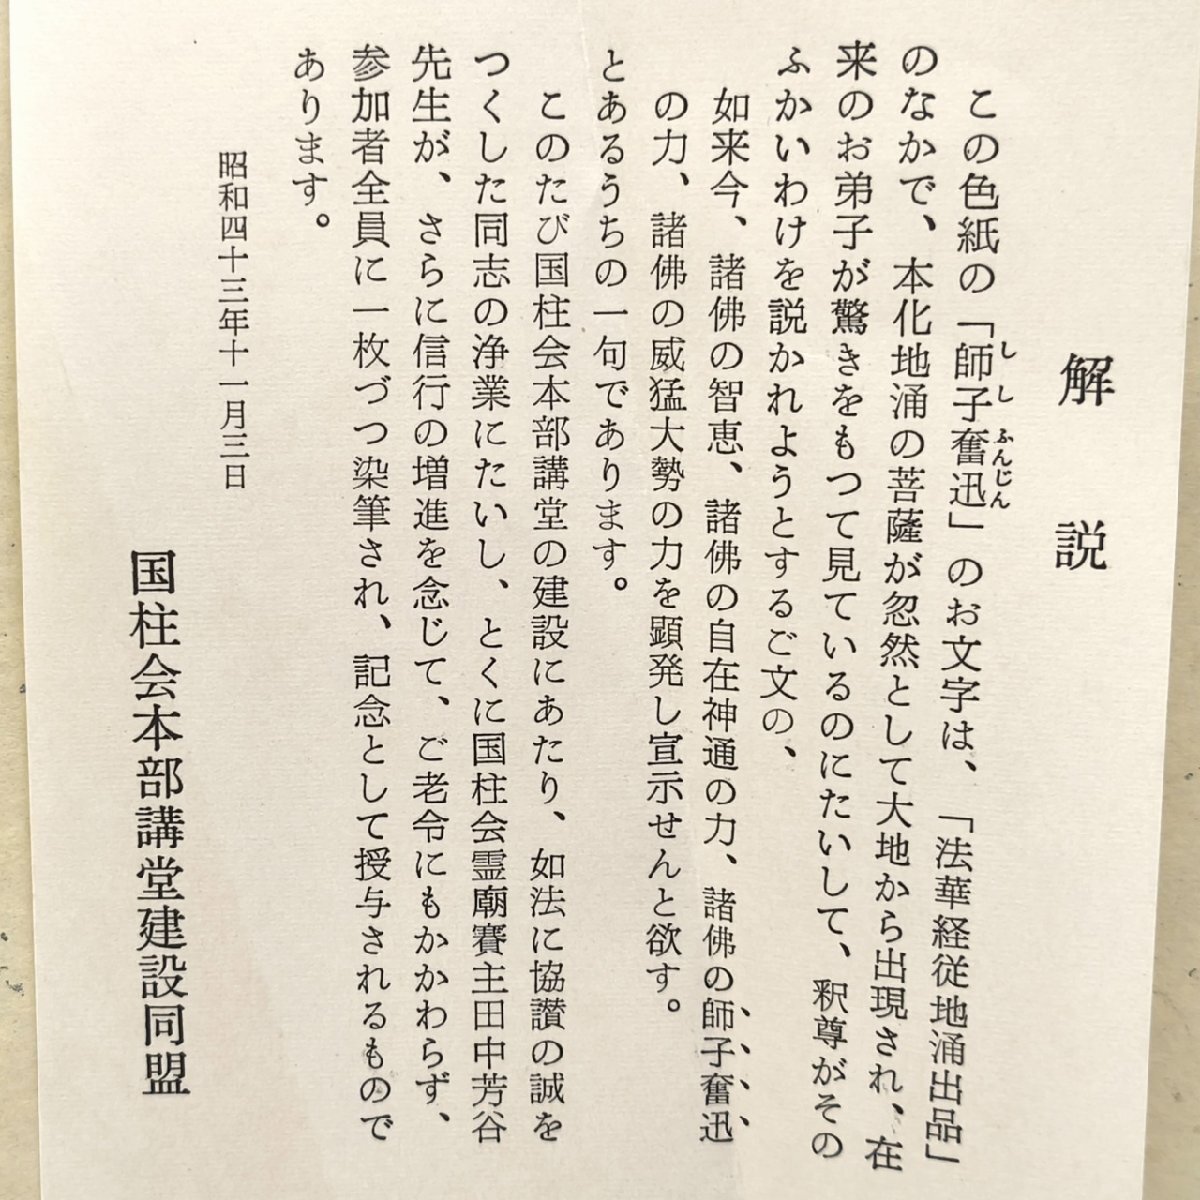 解説
この色紙の「師子奮迅」のお文字は、「法華経従地涌出品」
しし ふんじん
のなかで、本化地涌の菩薩が忽然として大地から出現され、在
来のお弟子が驚きをもつて見ているのにたいして、釈尊がその
ふかいわけを説かれようとするご文の、
如来今、諸佛の智恵、諸佛の自在神通の力、諸佛の師子奮迅
の力、諸佛の威猛大勢の力を顕発し宣示せんと欲す。
とあるうちの一句であります。
このたび国柱会本部講堂の建設にあたり、如法に協讃の誠を
つくした同志の浄業にたいし、とくに国柱会霊廟賽主田中芳谷
先生が、さらに信行の増進を念じて、ご老令にもかかわらず、
参加者全員に一枚づつ染筆され、記念として授与されるもので
あります。
昭和四十三年十一月三日
国柱会本部講堂建設同盟